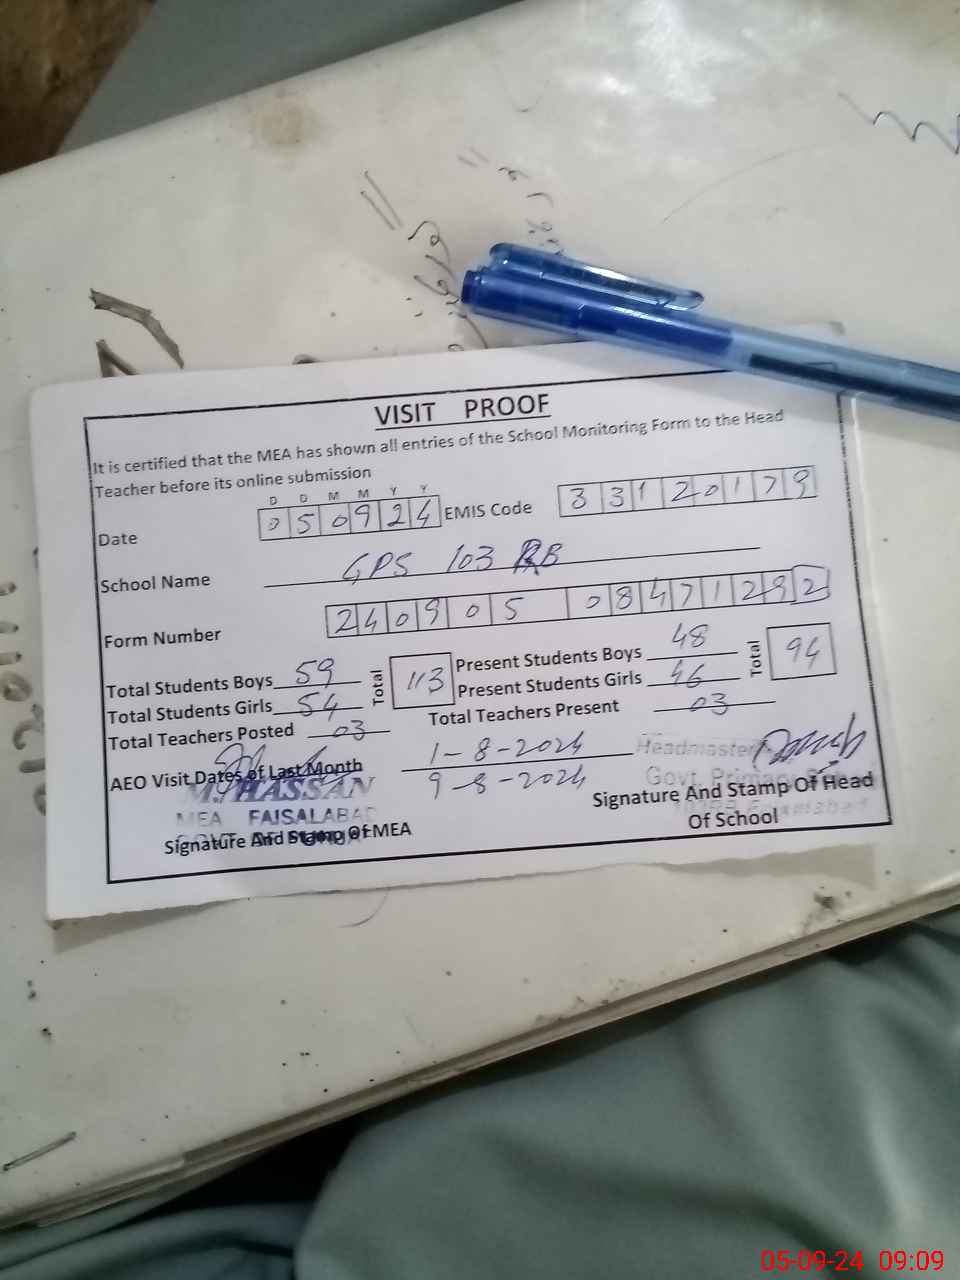 VISIT PROOF
It is certified that the MEA has shown all entries of the School Monitoring Form to the Head
Teacher before its online submission
D D M M Y Y
Date 050924 EMIS Code 33120179
School Name GPS 103 RB
Form Number 240905 08471292
Total Students Boys 59 Total 113 Present Students Boys 48 Total 94
Total Students Girls 54 Present Students Girls 46
Total Teachers Posted 03 Total Teachers Present 03
AEO Visit Dates of Last Month 1-8-2024
9-8-2024
Headmaster
Govt. Primary
M. HASSAN
MEA FAISALABAD
Signature And Stamp Of MEA
Signature And Stamp Of Head
Of School
05-09-24 09:09